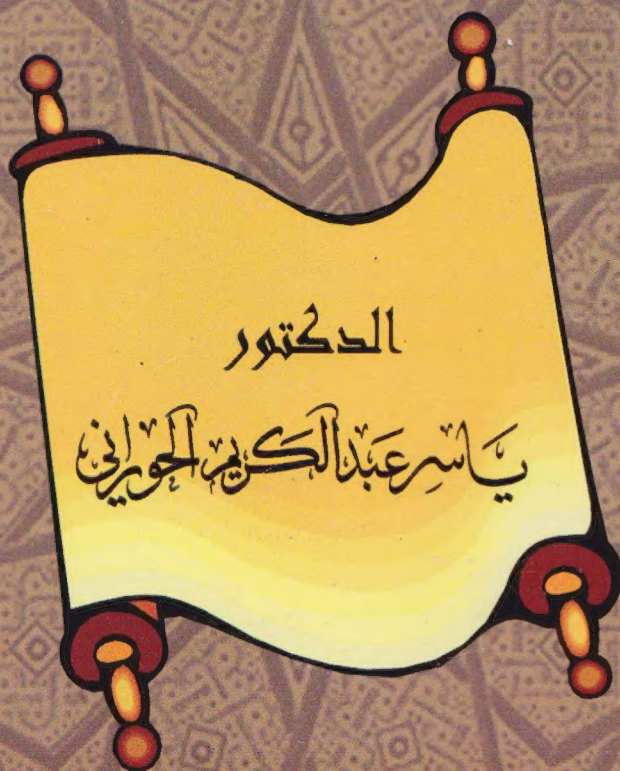 الدكتور
ياسر عبد الكريم الحوراني